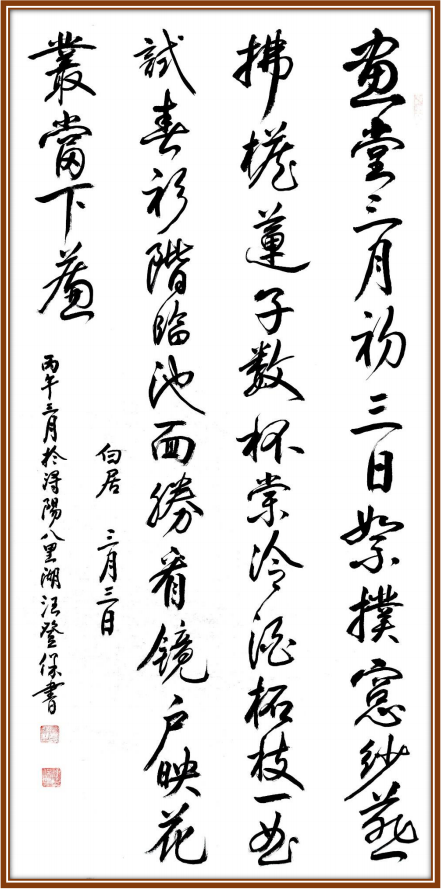 畫堂三月初三日絮撲窓紗燕
拂檐蓮子数杯嘗冷酒柘枝一曲
試春衫階臨池面勝看鏡戶映花
叢當下簾
白居 三月三日
丙午三月於潯陽八里湖汪登保書